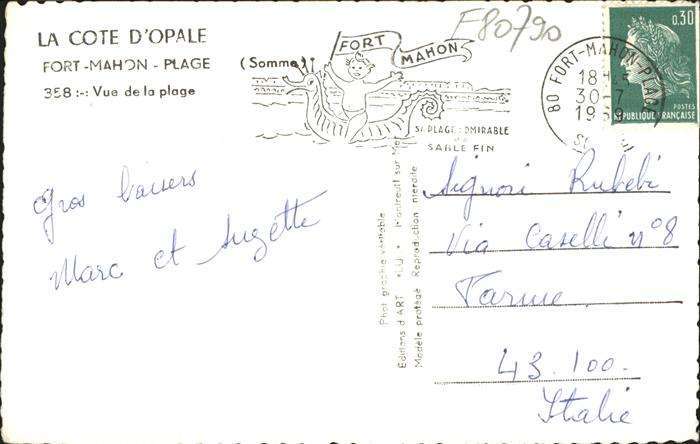 LA COTE D'OPALE
FORT-MAHON - PLAGE (Somme)
358 :-: Vue de la plage
F80790
FORT
MAHON
SA PLAGE ADMIRABLE
SABLE FIN
80 FORT-MAHON-PLAGE
18H
30-7
0,30
POSTES
REPUBLIQUE FRANÇAISE
Gros baisers
Marc et Suzette
Photographie véritable
Editions d'ART
Modèle protégé Reproduction interdite
Signori Rubebi
Via Caselli n°8
Parme
43.100.
Italie